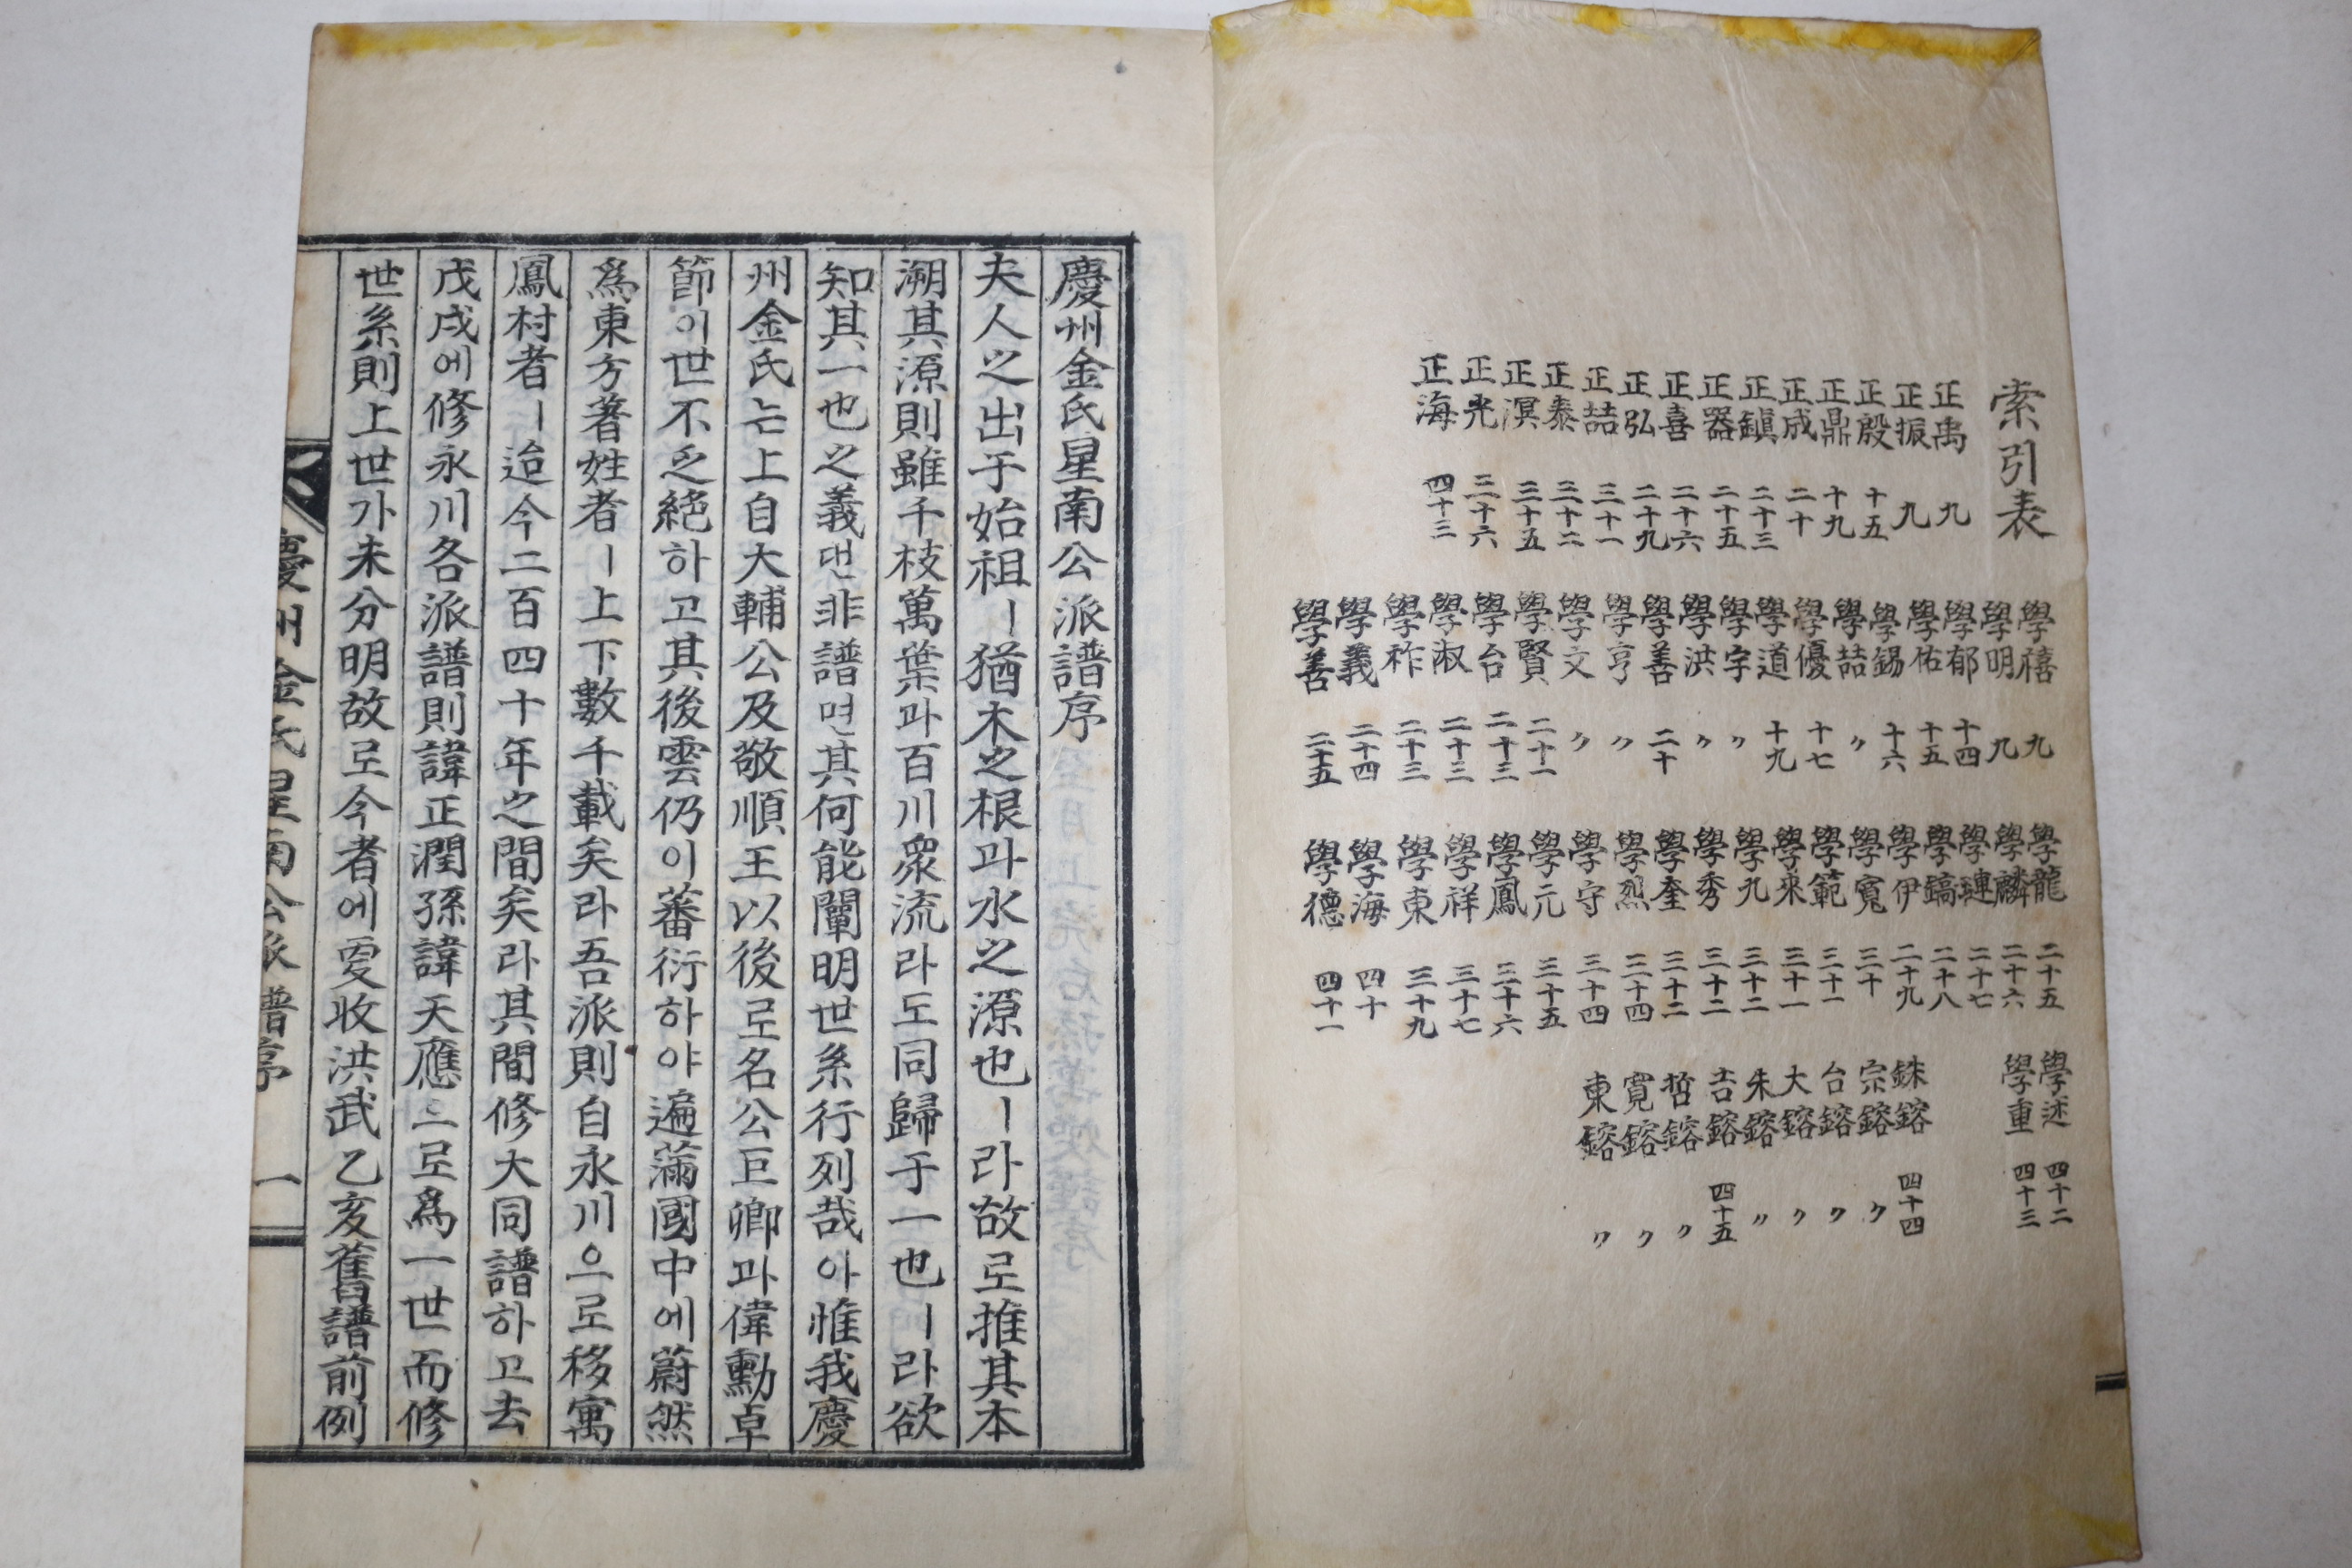 索引表
正禹 九
正振 九
正殷 十五
正鼎 十九
正成 二十
正鎭 二十三
正器 二十五
正喜 二十六
正弘 二十九
正喆 三十一
正泰 三十二
正溟 三十五
正光 三十六
正海 四十三
學禧 九
學明 九
學郁 十四
學佑 十五
學錫 十六
學喆 〃
學優 十七
學道 十九
學字 〃
學洪 〃
學善 二十
學亨 〃
學文 〃
學賢 二十一
學台 二十三
學淑 二十三
學祚 二十三
學義 二十四
學善 二十五
學龍 二十五
學麟 二十六
學璉 二十七
學鎬 二十八
學伊 二十九
學寬 三十
學範 三十一
學來 三十一
學九 三十二
學秀 三十二
學奎 三十二
學烈 三十四
學守 三十四
學元 三十五
學鳳 三十六
學祥 三十七
學東 三十九
學海 四十
學德 四十一
學述 四十二
學重 四十三
銖鎔 四十四
宗鎔 〃
台鎔 〃
大鎔 〃
朱鎔 〃
吉鎔 四十五
哲鎔 〃
寬鎔 〃
東鎔 〃
慶州金氏星南公派譜序
夫人之出于始祖ㅣ猶木之根과水之源也ㅣ라故로推其本
溯其源則雖千枝萬葉과百川衆流라도同歸于一也ㅣ라欲
知其一也之義댄非譜면其何能闡明世系行列哉아惟我慶
州金氏는上自大輔公及敬順王以後로名公巨卿과偉勳卓
節이世不乏絕하고其後雲仍이蕃衍하야遍滿國中에蔚然
爲東方著姓者ㅣ上下數千載矣라吾派則自永川으로移寓
鳳村者ㅣ迨今二百四十年之間矣라其間修大同譜하고去
戊戌에修永川各派譜則諱正潤孫諱天應으로爲一世而修
世系則上世가未分明故로今者에更收洪武乙亥舊譜前例
慶州金氏星南公派譜序 一